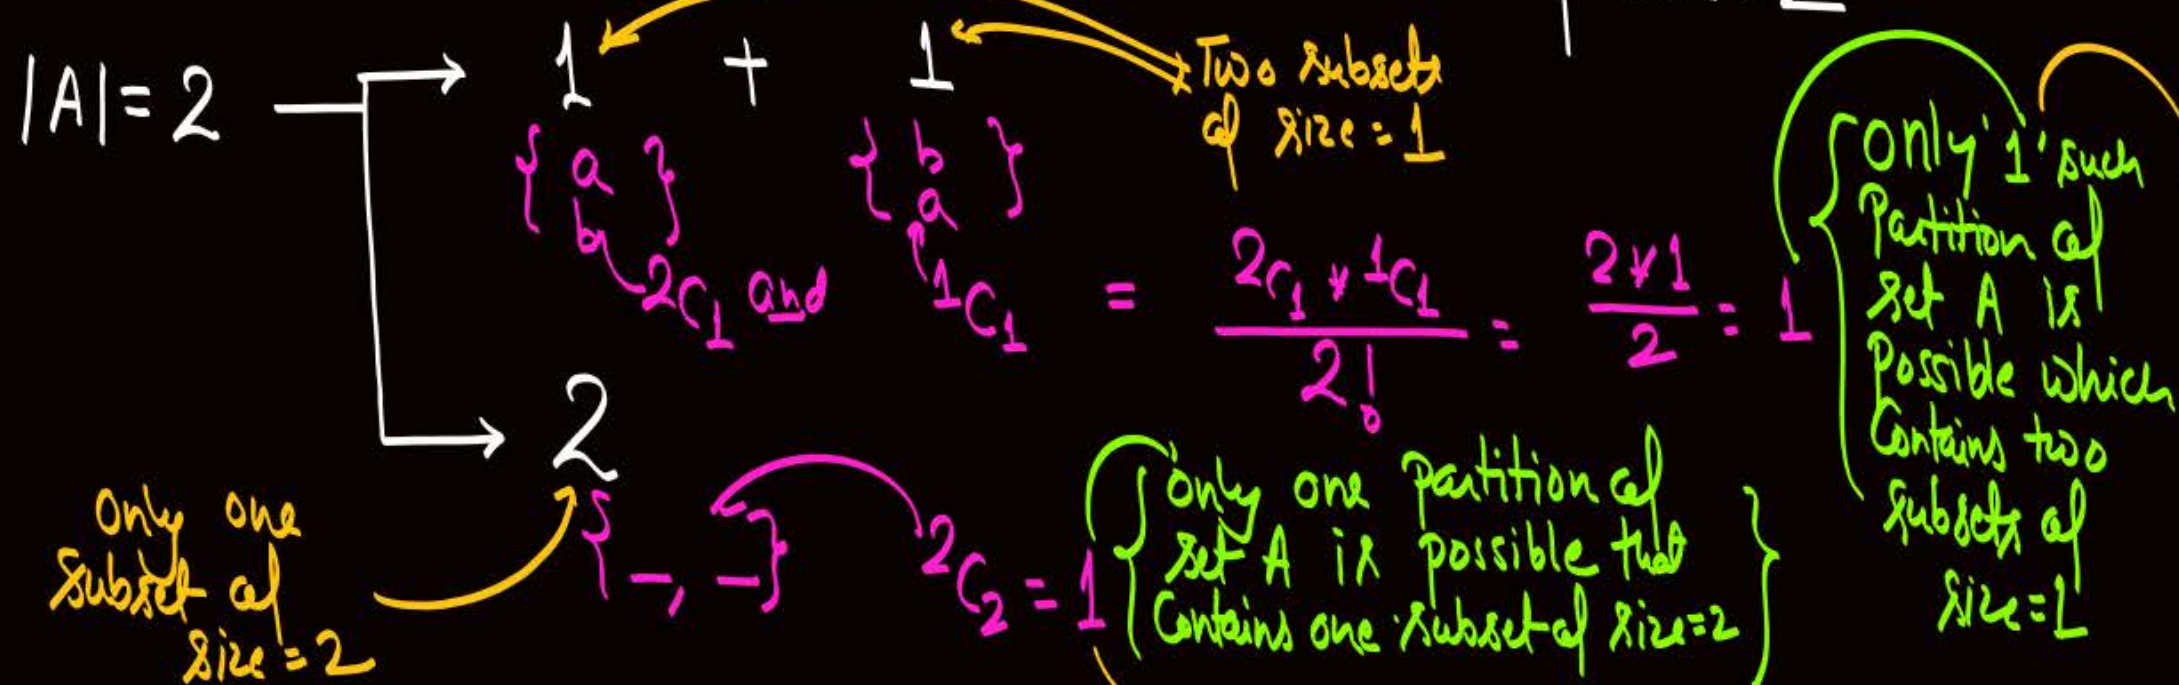 |A| = 2
1 + 1
Two subsets
of size = 1
{ a } { b }
{ b } { a }
2C1 and 1C1 = 2C1 * 1C1 / 2! = 2*1 / 2 = 1
only '1' such
Partition of
set A is
possible which
Contains two
subsets of
size = 1
2
only one
subset of
size = 2
{ _, _ }
2C2 = 1
only one partition of
set A is possible that
Contains one subset of size = 2